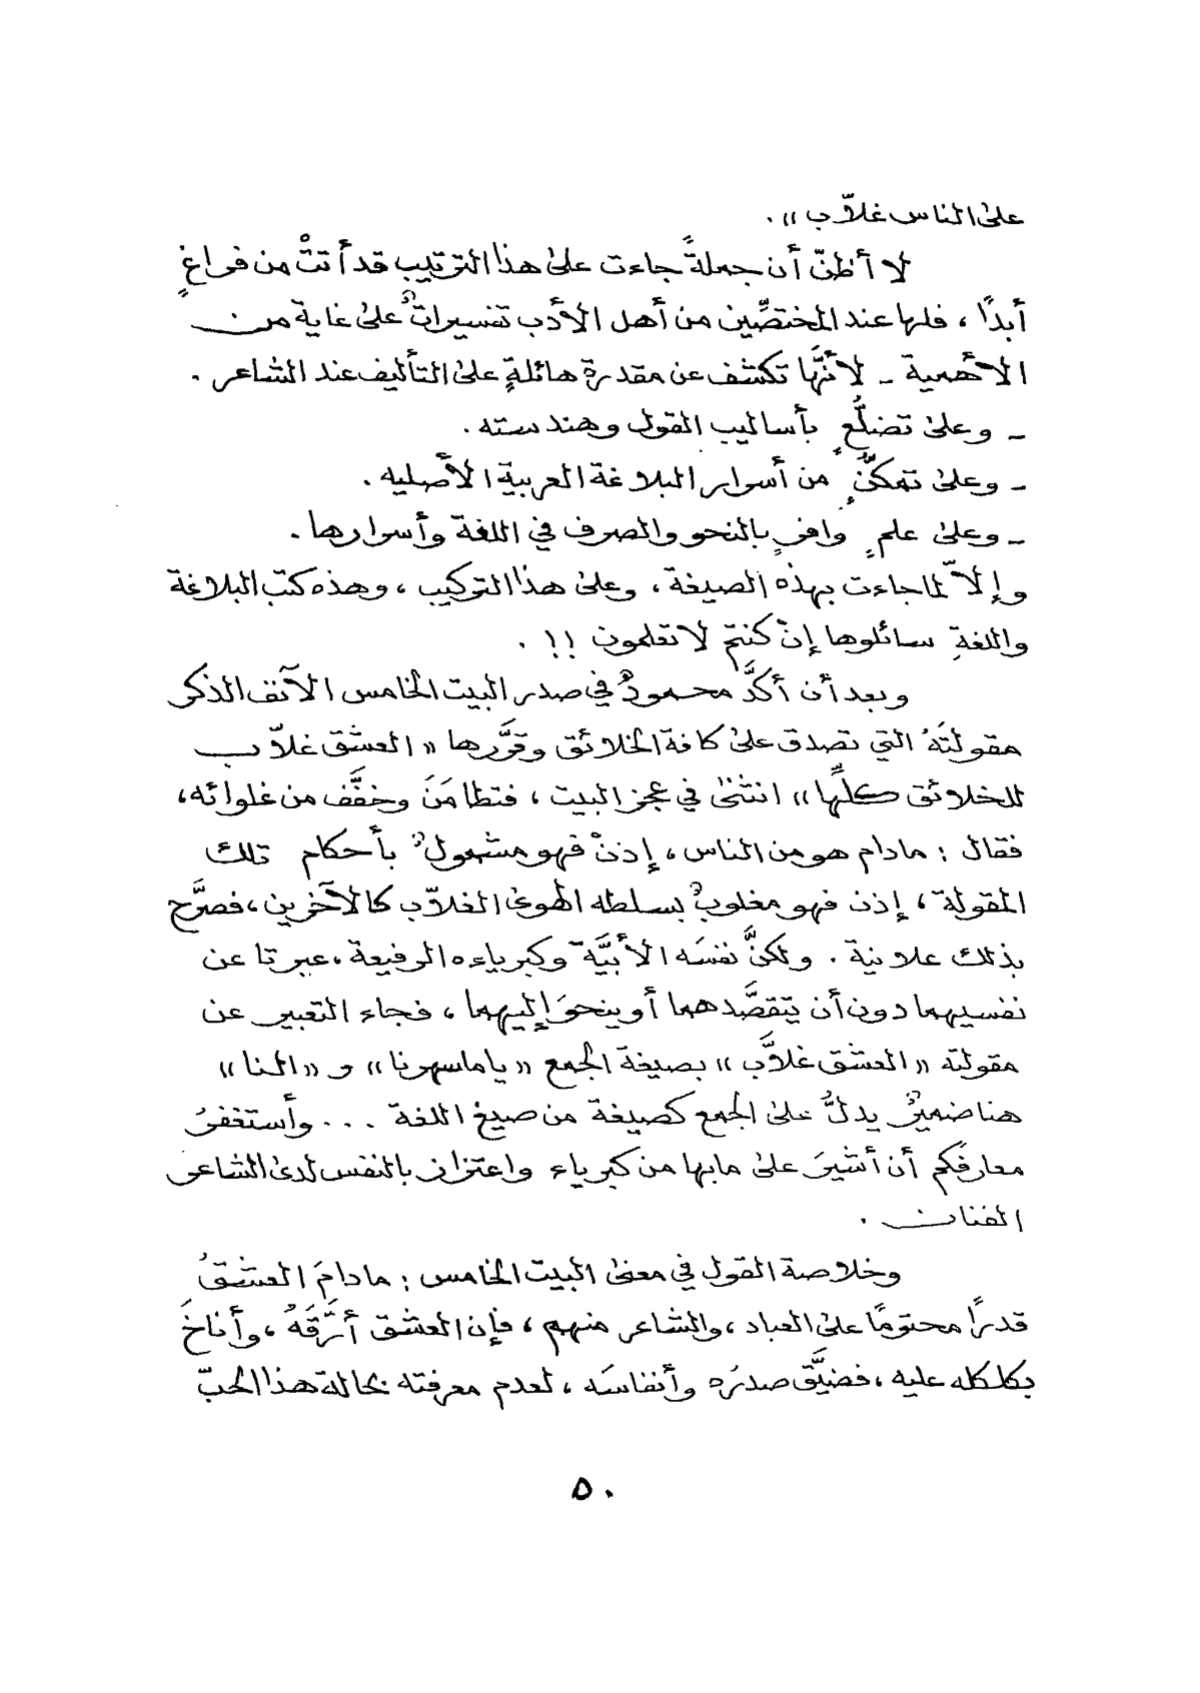 على الناس غلاّب » .
لا أظنّ أن جملةً جاءت على هذا الترتيب قد أتتْ من فراغٍ
أبدًا ، فلها عند المختصِّين من أهل الأدب تفسيراتٌ على غاية من
الأهمية ـ لأنَّها تكشف عن مقدرة هائلةٍ على التأليف عند الشاعر .
ـ وعلى تضلُّعٍ بأساليب القول وهندسته .
ـ وعلى تمكّنٍ من أسرار البلاغة العربية الأصليه .
ـ وعلى علمٍ وافرٍ بالنحو والصرف في اللغة وأسرارها .
وإلاّ لما جاءت بهذه الصيغة ، وعلى هذا التركيب ، وهذه كتب البلاغة
واللغةِ سائلوها إنْ كنتمْ لا تعلمون !! .
وبعد أن أكدَّ محمودٌ في صدر البيت الخامس الآنف الذكر
مقولتَهُ التي تصدق على كافة الخلائق وقرَّرها « العشق غلاّب
للخلائق كلِّها » انثنى في عجز البيت ، فتطامَنَ وخفَّف من غلوائه ،
فقال : مادام هو من الناس ، إذنْ فهو مشمولٌ بأحكام تلك
المقولة ، إذن فهو مغلوبٌ بسلطه الهوى الغلاّب كالآخرين ، فصرَّح
بذلك علانية . ولكنَّ نفسَه الأبيَّة وكبرياءه الرفيعة ، عبرتا عن
نفسيهما دون أن يتقصَّدهما أو ينحوَ إليهما ، فجاء التعبير عن
مقولته « العشق غلاَّب » بصيغة الجمع « ياما سهرنا » و « النا »
هنا ضميرٌ يدلُّ على الجمع كصيغة من صيغ اللغة . . . وأستغفرُ
معارفَكم أن أشيرَ على مابها من كبرياء واعتزاز بالنفس لدى الشاعر
الفنان .
وخلاصة القول في معنى البيت الخامس : مادامَ العشقُ
قدرًا محتومًا على العباد ، والشاعر منهم ، فإن العشق أرَّقَهُ ، وأناخَ
بكلكله عليه ، فضيَّق صدرَه وأنفاسَه ، لعدم معرفته بحالة هذا الحبّ
٥٠